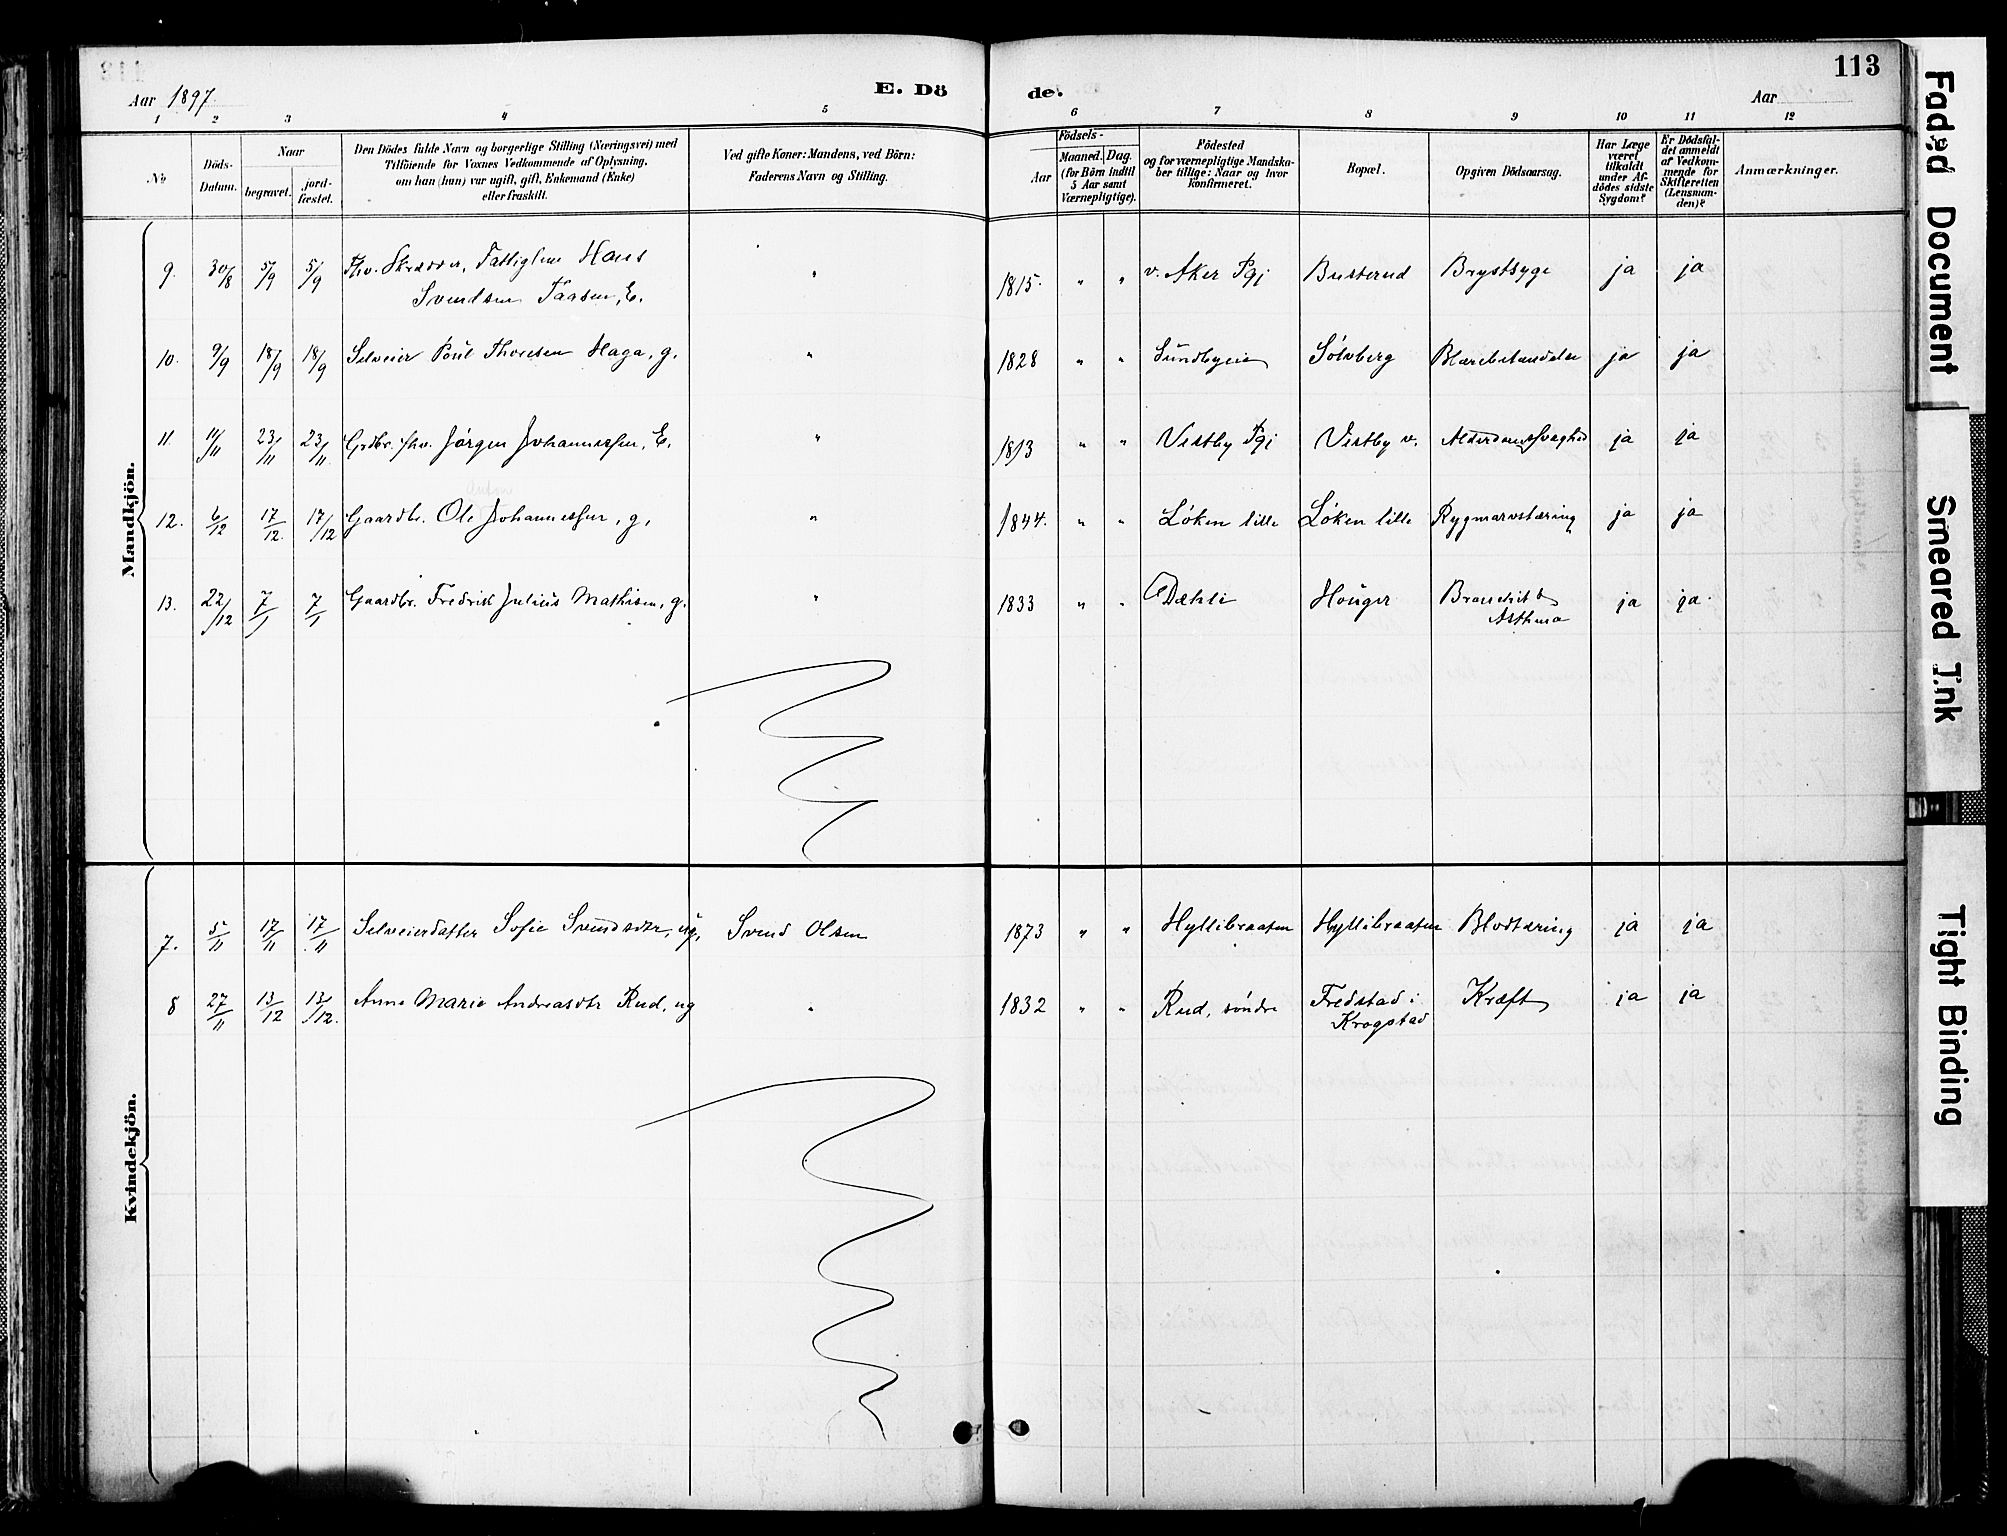 113
Aar 1897.
E. Döde.
Aar
1 2 3 4 5 6 7 8 9 10 11 12
No
Döds-Datum.
Naar
begravet.
jord-fæstet.
Den Dödes fulde Navn og borgerlige Stilling (Næringsvei) med
Tilföiende for Voxnes Vedkommende af Oplysning,
om han (hun) var ugift, gift, Enkemand (Enke)
eller fraskilt.
Ved gifte Koner: Mandens, ved Börn:
Faderens Navn og Stilling.
Födsels-
Aar
Maaned. Dag.
(for Börn indtil
5 Aar samt
Værnepligtige).
Födested
og for værnepligtige Mandska-
ber tillige: Naar og hvor
konfirmeret.
Bopæl.
Opgiven Dödsaarsag.
Har Læge
været
tilkaldt
under Af-
dödes sidste
Sygdom?
Er Dödsfal-
det anmeldt
af Vedkom-
mende for
Skifteretten
(Lensman-
den)?
Anmærkninger.
Mandkjön.
9. 30/8 5/9 5/9 Fhv. Skrædder, Fattiglem Hans " 1815. " " v. Aker Pgj Busterud Brystsyge ja ja
Svendsen Taasen, E.
10. 9/9 18/9 18/9 Selveier Poul Thoresen Haga, g. " 1828 " " Sundbyeie Sölvberg Blærebetændelse ja ja
11. 11/11 23/11 23/11 Grdbr. fhv. Jörgen Johannessen, E. " 1813 " " Vestby Pgj Vestby v. Alderdomssvaghed ja ja
Anton
12. 6/12 17/12. 17/12 Gaardbr. Ole Johannessen, g, " 1844. " " Löken lille Löken lille Rygmarvstæring ja ja
13. 22/12 7/1 7/1 Gaardbr. Fredrik Julius Mathisen, g. " 1833 " " Dæhli Houger Bronchit & ja ja.
Asthma
Kvindekjön.
7. 5/11 17/11 17/11 Selveierdatter Sofie Svendsdtr, ug, Svend Olsen 1873 " " Hyllibraaten Hyllibraaten Blodtæring ja ja
8 27/11 13/12 13/12. Anne Marie Andreasdtr Rud, ug " 1832 " " Rud, söndre Fredstad i Kræft ja ja
Krogstad
Faded Document
Smeared Ink
Tight Binding